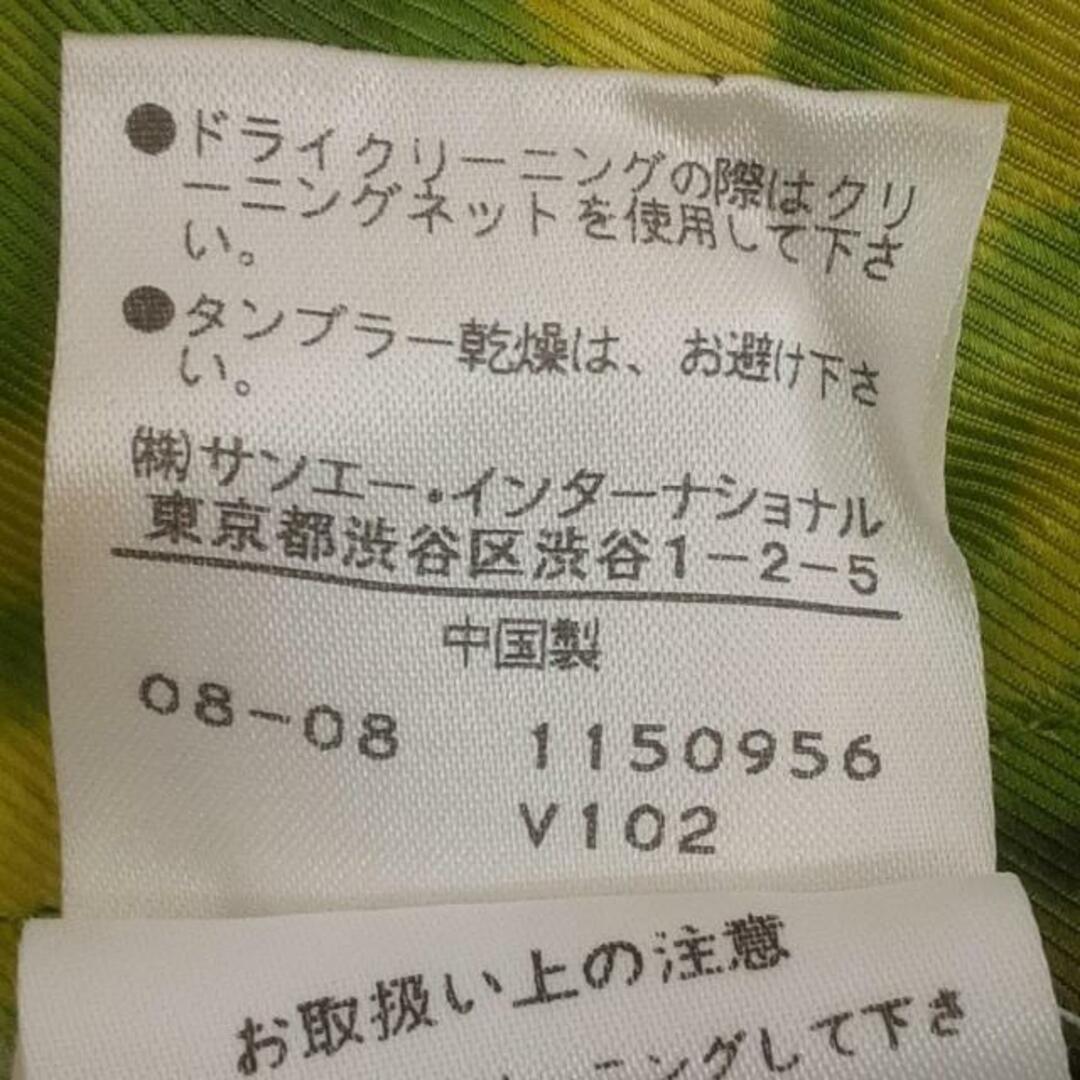 ●ドライクリーニングの際はクリ
ーニングネットを使用して下さ
い。
●タンブラー乾燥は、お避け下さ
い。
㈱サンエー・インターナショナル
東京都渋谷区渋谷1-2-5
中国製
08-08 1150956
V102
お取扱い上の注意
ーニングして下さ